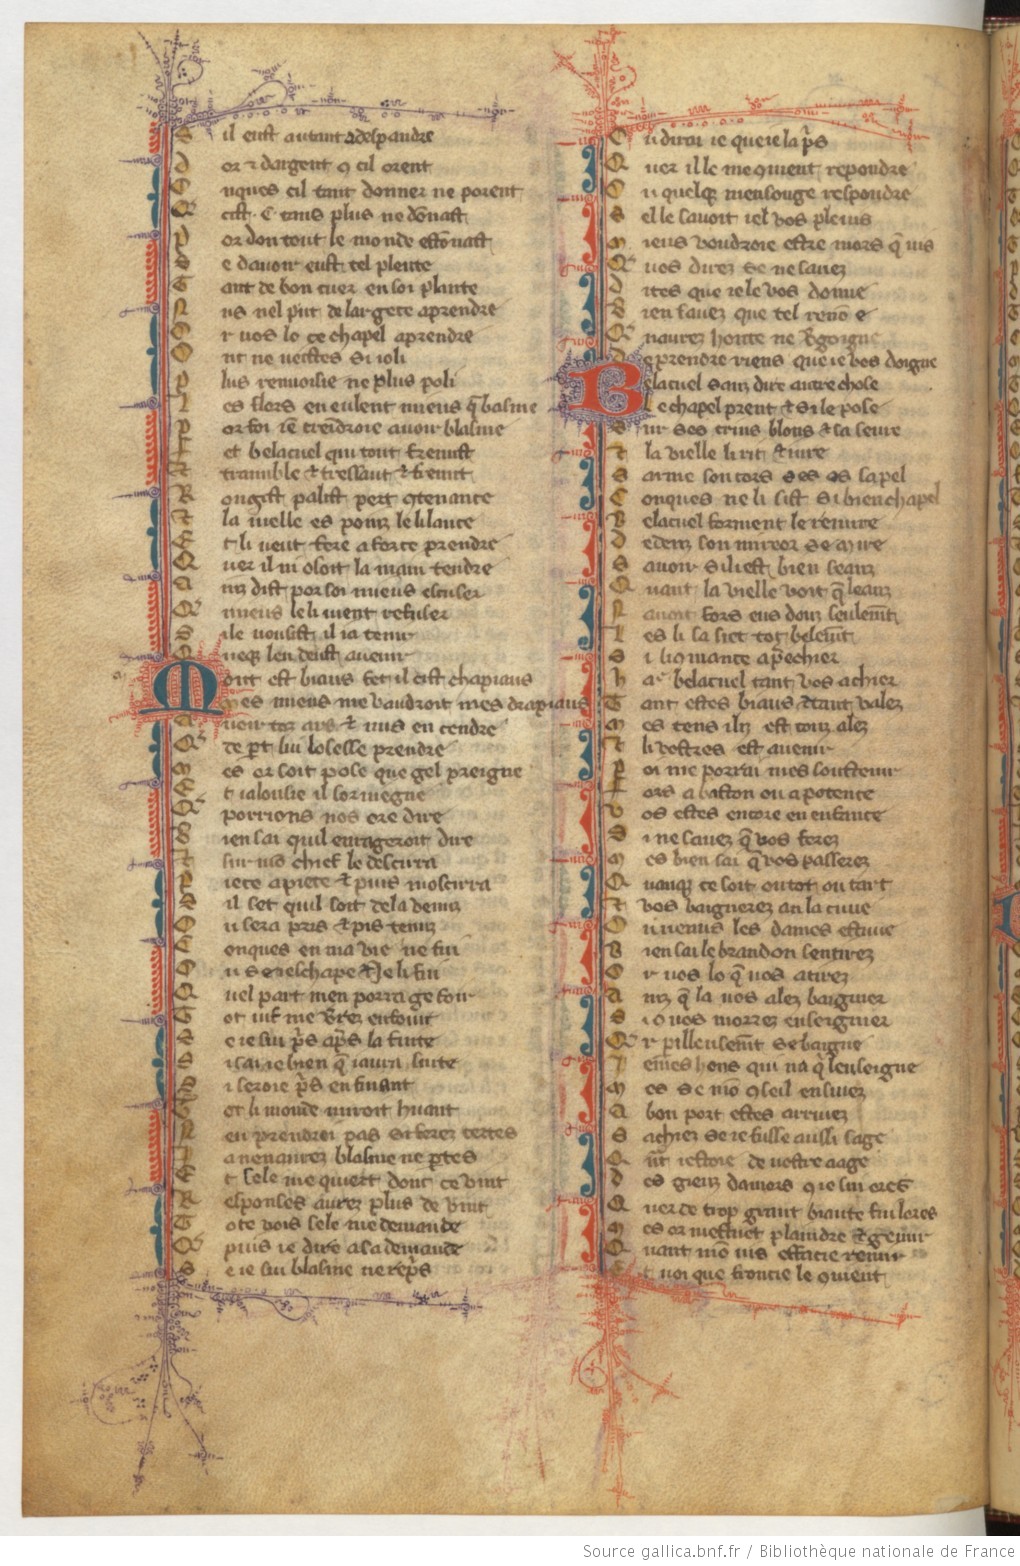 S il eust autant a despandre
D or & dargent 9 cil orent
C nques cil tant donner ne porent
Q cist .C. tans plus ne dōnast
P or don tout le monde estōnast
S e dauoir eust tel plente
T ant de bon cuer en soi plante
N us nel puit de largece aprendre
O r vos lo ce chapel a prendre
O nt ne veistes si ioli
P lus renuoisie ne plus poli
L es flors en eulent mieus q̄ basme
P or foi
E t belacuel qui tout fremist
T ramble & tressaut & fremit
R ougist palist pert 9tenance
L a vielle es poinz le li lance
E t li veut fere a force prendre
Q uer il ni osoit la main tendre
A nz dist por soi mieus escuser
Q mieus le li vient refuser
S ile vousist il ia tenir
Q ueq̄ len deust auenir
M out est biaus fet il cist chapiaus
M es mieus me vaudroit mes drapiaus
A uoir toz ars & mis en cendre
Q de p̱t lui losasse prendre
M es or soit pose que gel preigne
E t ialousie
Q porriens nos ore dire
B ien sai quil enrageroit dire
sur mō chief le descirra
P iece a piece & puis mocirra
il set quil soit de la venuz
O u sera pris & pis tenuz
C onques en ma vie ne fui
O u se ie leschape & ie li fui
Q uel part men porrai ge foir
T ot vif me v̄rez enfouir
S e ie sui pṝs apṝs la fuite
S i sai ie bien q̄ iaurai suite
S i seroie pṝs en fuiant
T ot li monde miroit huant
N en prendrei pas si ferez certes
ia nen aurez blasme ne ꝑtes
E t sele me quiert dont ce vint
R esponses aurez plus de vint
T ote vois sele me demande
Q puis ie dire a sa demande
S e ie sui blasme ne repṝs
O u dirai ie que ie la pṝs
Q uer il le me 9uient respondre
O u quelq̄ mensonge respondre
S el le sauoit iel vos pleuis
M ieus voudroie estre mors q̄ vis
Q vos direz se ne sauez
D ites que ie le vos donne
B ien sauez que tel renō e
Q naurez honte ne v̄goigne
D e prendre riens que ie vos doigne
B elacuel sanz dire autre chose
L e chapel prent & si le pose
S ur ses crins blons & sa seure
& la vielle li rit & iure
S a me son cors ses os sa pel
C onques ne li sist si bien chapel
B elacuel forment le remire
D edenz son mireor se mire
S auoir sil iest bien seanz
Q uant la vielle voit q̄ leanz
N auoit fors eus dous seulem̄t
L es li sa siet tot belem̄t
S i li 9mance a p̄echier
H a belacuel tant vos ai chier
T ant estes biaus & tant valez
M es tens iliz est touz alez
& li vostres est auenir
P oi me porrai mes soustenir
F ors a baston ou a potence
V os estes encore en enfance
S i ne sauez q̄ vos ferez
M es bien sai q̄ vos passerez
Q uanq̄ ce soit ou tot ou tart
vos baignerez an la cuue
O u venus les dames estuue
B ien sai le brandon sentirez
O r vos lo q̄ vos atirez
A nz q̄ la vos alez baignier
S i 9 vos morrez enseignier
Q r pilleusem̄t se baigne
J eines hons qui na q̄ lenseigne
M es se mō 9seil ensiuez
A bon port estes arriuez
S achiez se ie fusse aussi sage
Q ūt iestoie de vostre aage
D es gieuz damors 9 ie sui ores
Q uer de trop grant biaute fui lores
M es or mestuet plaindre & gemir
Q uant mō vis esfacie remir
E t voi que froncir le 9uient
Source gallica.bnf.fr / Bibliothèque nationale de France